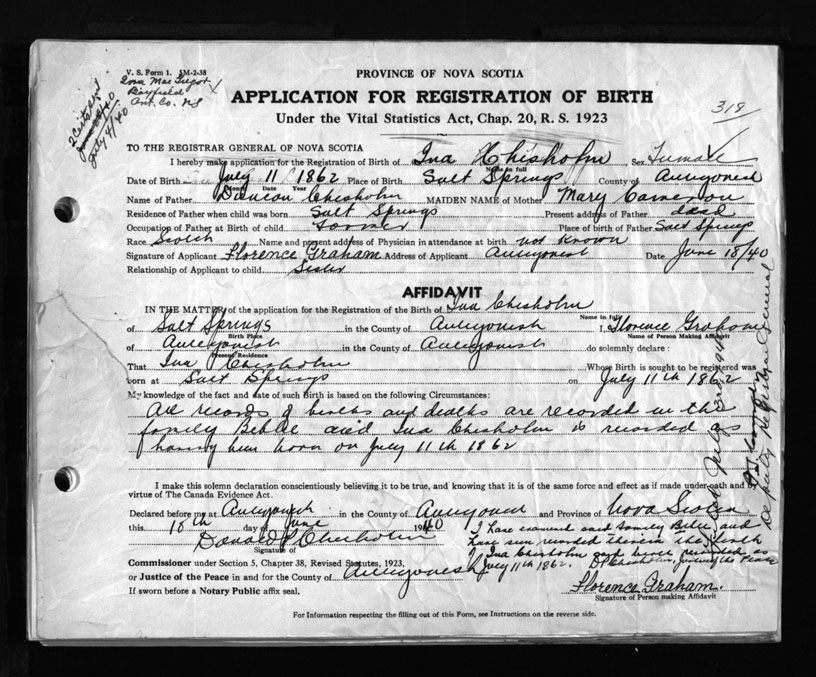 V. S. Form 1. 5M-2-38
PROVINCE OF NOVA SCOTIA
Bayfield
Ant. Co. NS
July 4/40
APPLICATION FOR REGISTRATION OF BIRTH
318
Under the Vital Statistics Act, Chap. 20, R. S. 1923
TO THE REGISTRAR GENERAL OF NOVA SCOTIA
I hereby make application for the Registration of Birth of Ina Chisholm Sex Female
Name in full
Date of Birth July 11 1862 Place of Birth Salt Springs County of Antigonish
Month Date Year
Name of Father Duncan Chisholm MAIDEN NAME of Mother Mary Cameron
Residence of Father when child was born Salt Springs Present address of Father dead
Occupation of Father at Birth of child Farmer Place of birth of Father Salt Springs
Race Scotch Name and present address of Physician in attendance at birth not known
Signature of Applicant Florence Graham Address of Applicant Antigonish Date June 18/40
Relationship of Applicant to child Sister
AFFIDAVIT
IN THE MATTER of the application for the Registration of the Birth of Ina Chisholm
Name in full
of Salt Springs in the County of Antigonish I, Florence Graham
Birth Place Name of Person Making Affidavit
of Antigonish in the County of Antigonish do solemnly declare :
Present Residence
That Ina Chisholm Whose Birth is sought to be registered was
born at Salt Springs on July 11th 1862
My knowledge of the fact and date of such Birth is based on the following Circumstances:
All records of births and deaths are recorded in the
family Bible and Ina Chisholm is recorded as
having been born on July 11th 1862
I make this solemn declaration conscientiously believing it to be true, and knowing that it is of the same force and effect as if made under oath and by
virtue of The Canada Evidence Act.
Declared before me at Antigonish in the County of Antigonish and Province of Nova Scotia
this 18th day of June 1940
Donald P Chisholm
Signature of
I have examined said family Bible and
have seen recorded therein the birth
of Ina Chisholm and birth recorded as
July 11th 1862. D P Chisholm, Justice of the Peace
Commissioner under Section 5, Chapter 38, Revised Statutes, 1923,
or Justice of the Peace in and for the County of Antigonish
If sworn before a Notary Public affix seal.
Florence Graham.
Signature of Person making Affidavit
For Information respecting the filling out of this Form, see Instructions on the reverse side.
Deputy Registrar General